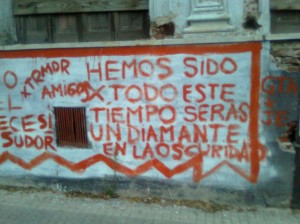 HEMOS SIDO
AMIGOS X TODO ESTE
TIEMPO SERAS
UN DIAMANTE
EN LA OSCURIDAD
O
EL
ECESI
SUDOR